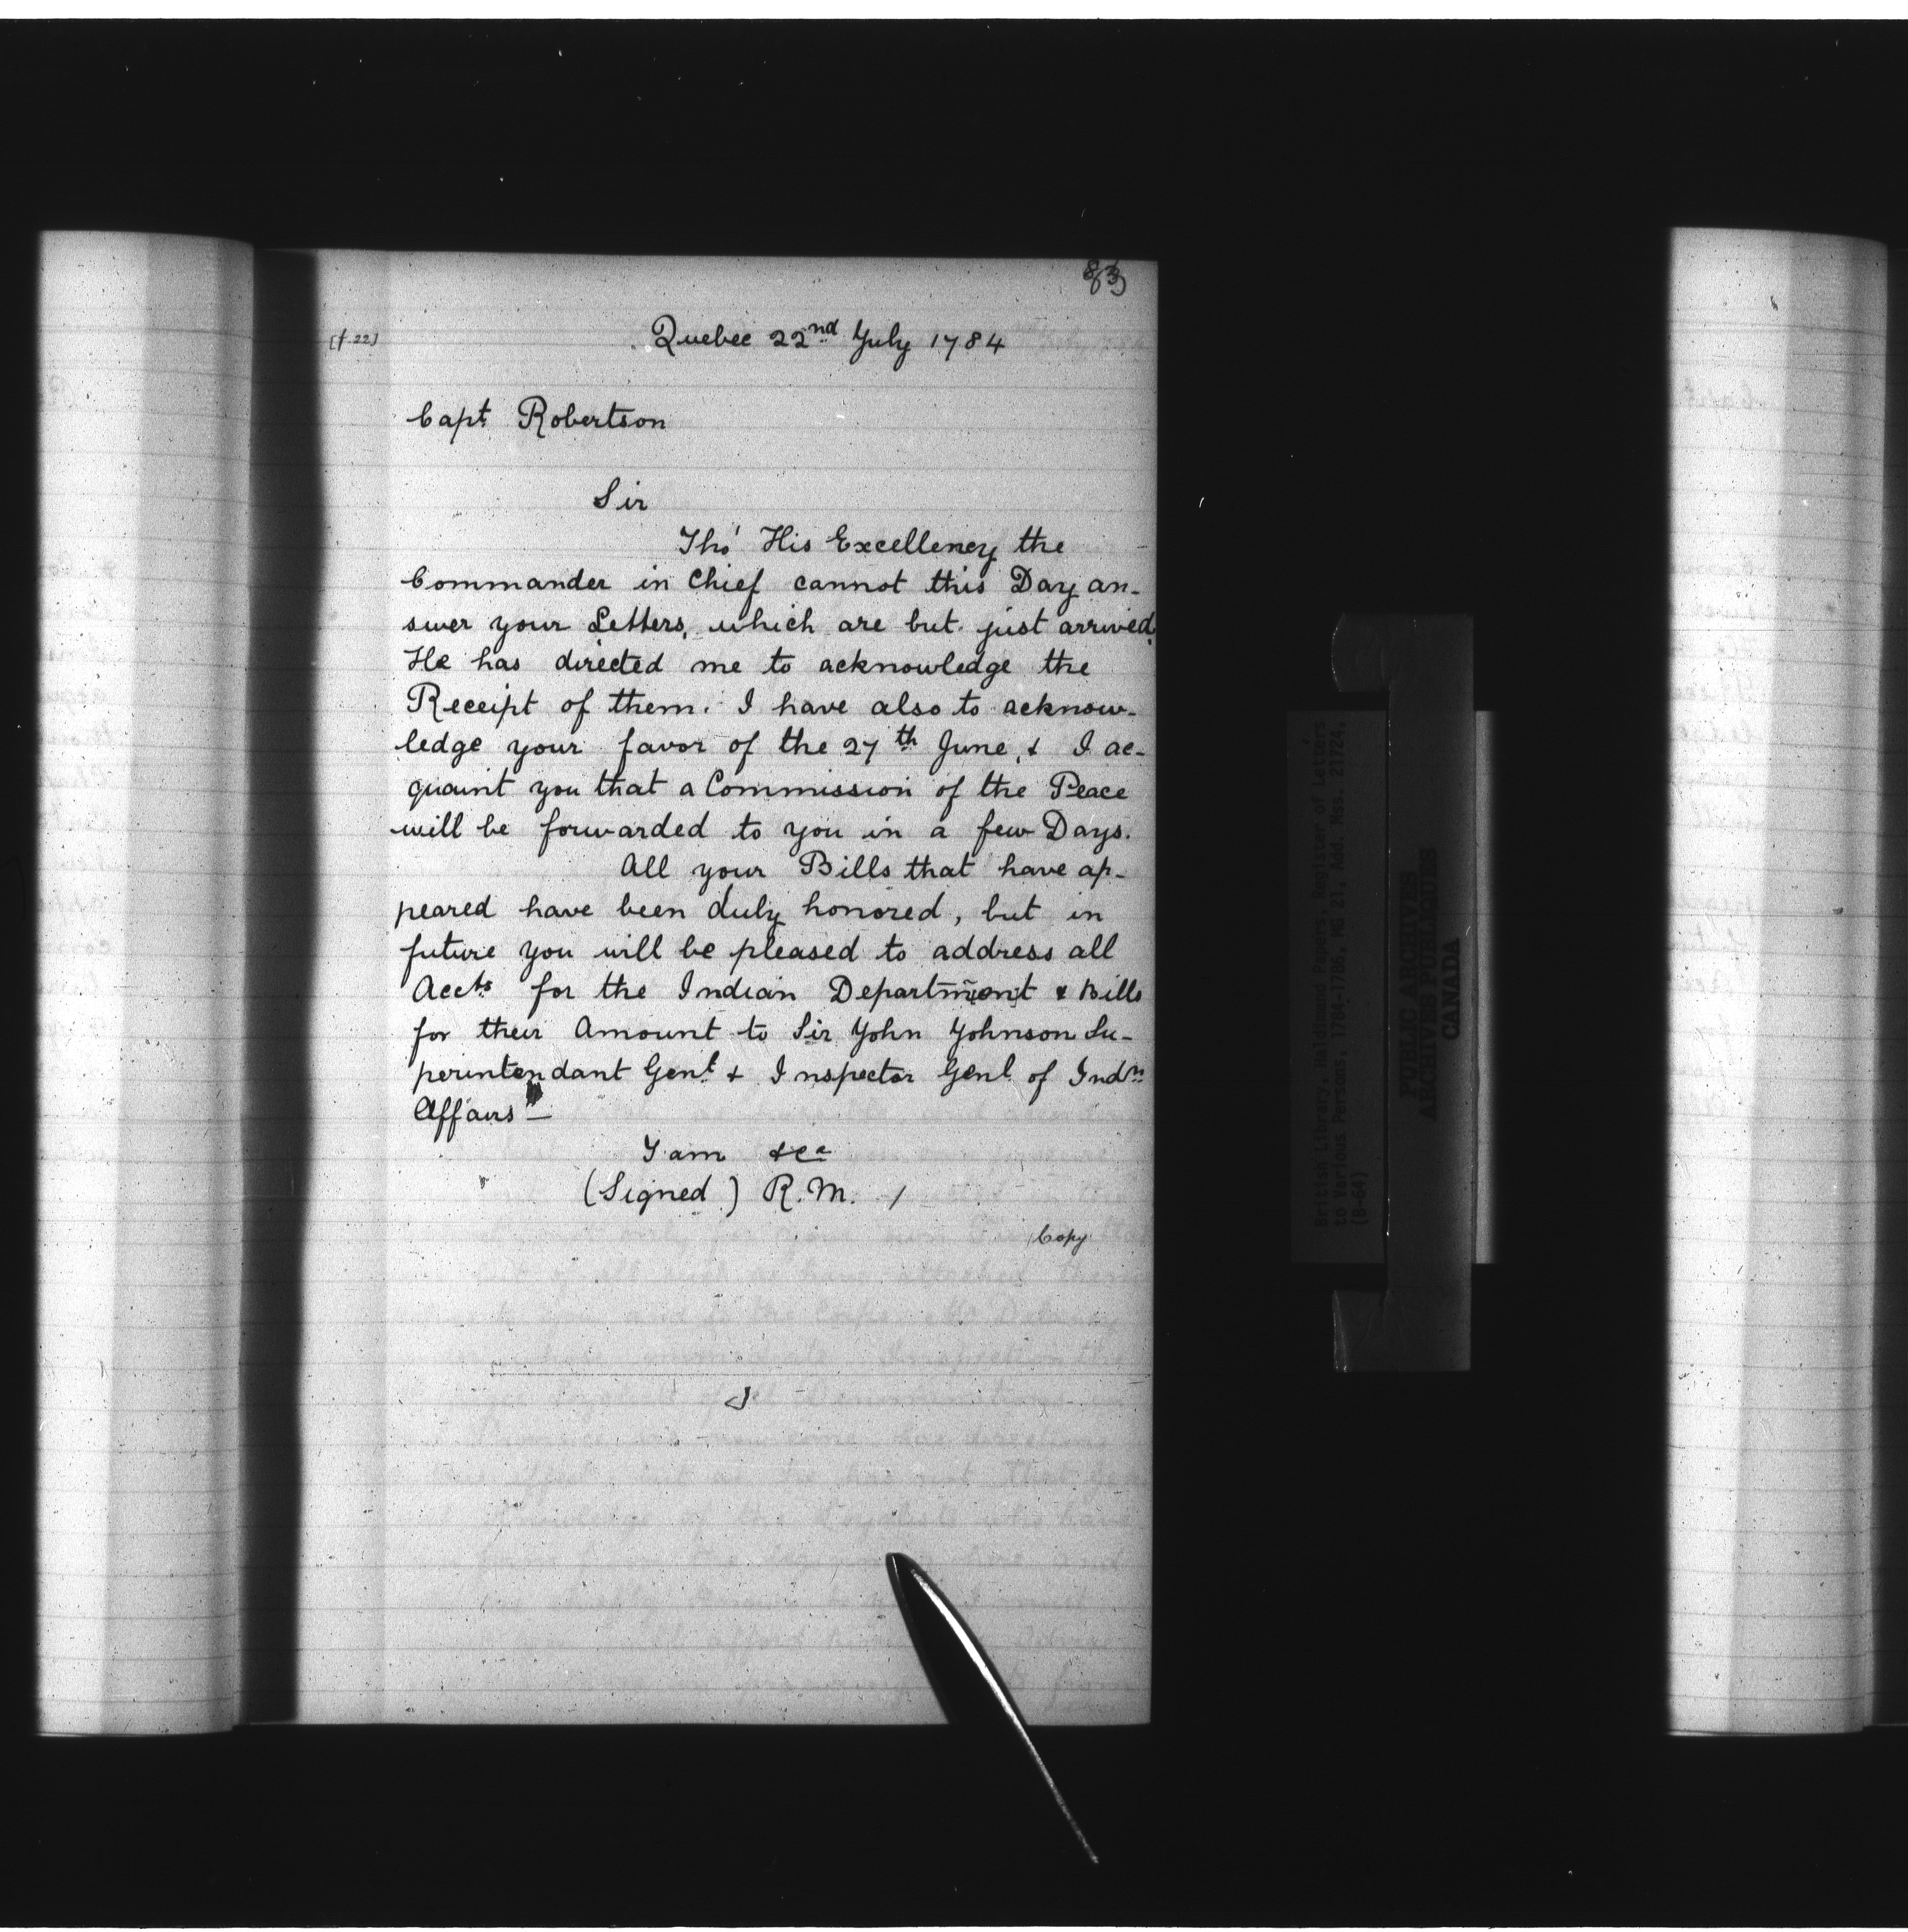 83
[f. 22]
Quebec 22nd July 1784
Capt Robertson
Sir
Tho' His Excellency the
Commander in Chief cannot this Day an-
swer your Letters, which are but just arrived.
He has directed me to acknowledge the
Receipt of them. I have also to acknow-
ledge your favor of the 27th June, & I ac-
quaint you that a Commission of the Peace
will be forwarded to you in a few Days.
All your Bills that have ap-
peared have been duly honored, but in
future you will be pleased to address all
Accts for the Indian Department & Bills
for their Amount to Sir John Johnson Su-
perintendant Genl & Inspector Genl of Indn
Affairs —
I am &ca
(Signed) R. M. /
Copy
British Library, Haldimand Papers, Register of Letters
to Various Persons, 1784-1786, MG 21, Add. Mss. 21724,
(B-64)
PUBLIC ARCHIVES
ARCHIVES PUBLIQUES
CANADA